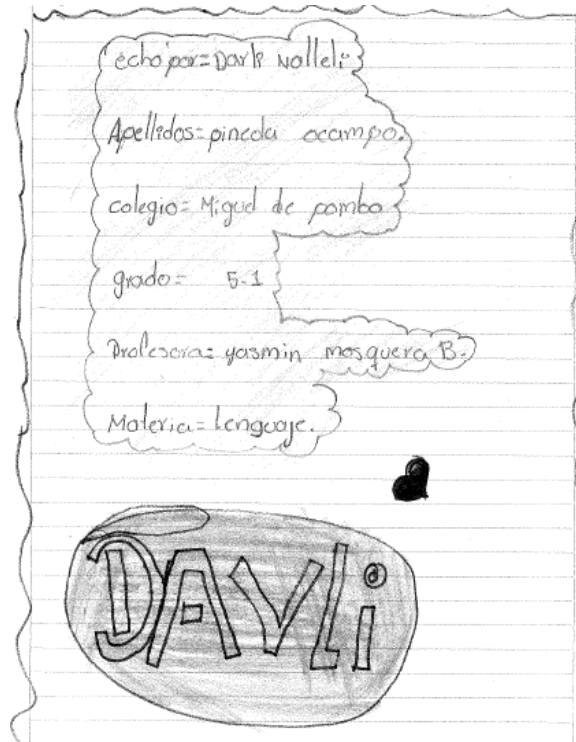 echo por=Darli Nalleli
Apellidos=pineda ocampo.
colegio=Miguel de pombo
grado= 5-1
Profesora=yasmin mosquera B.
Materia=Lenguaje.
DAYLi